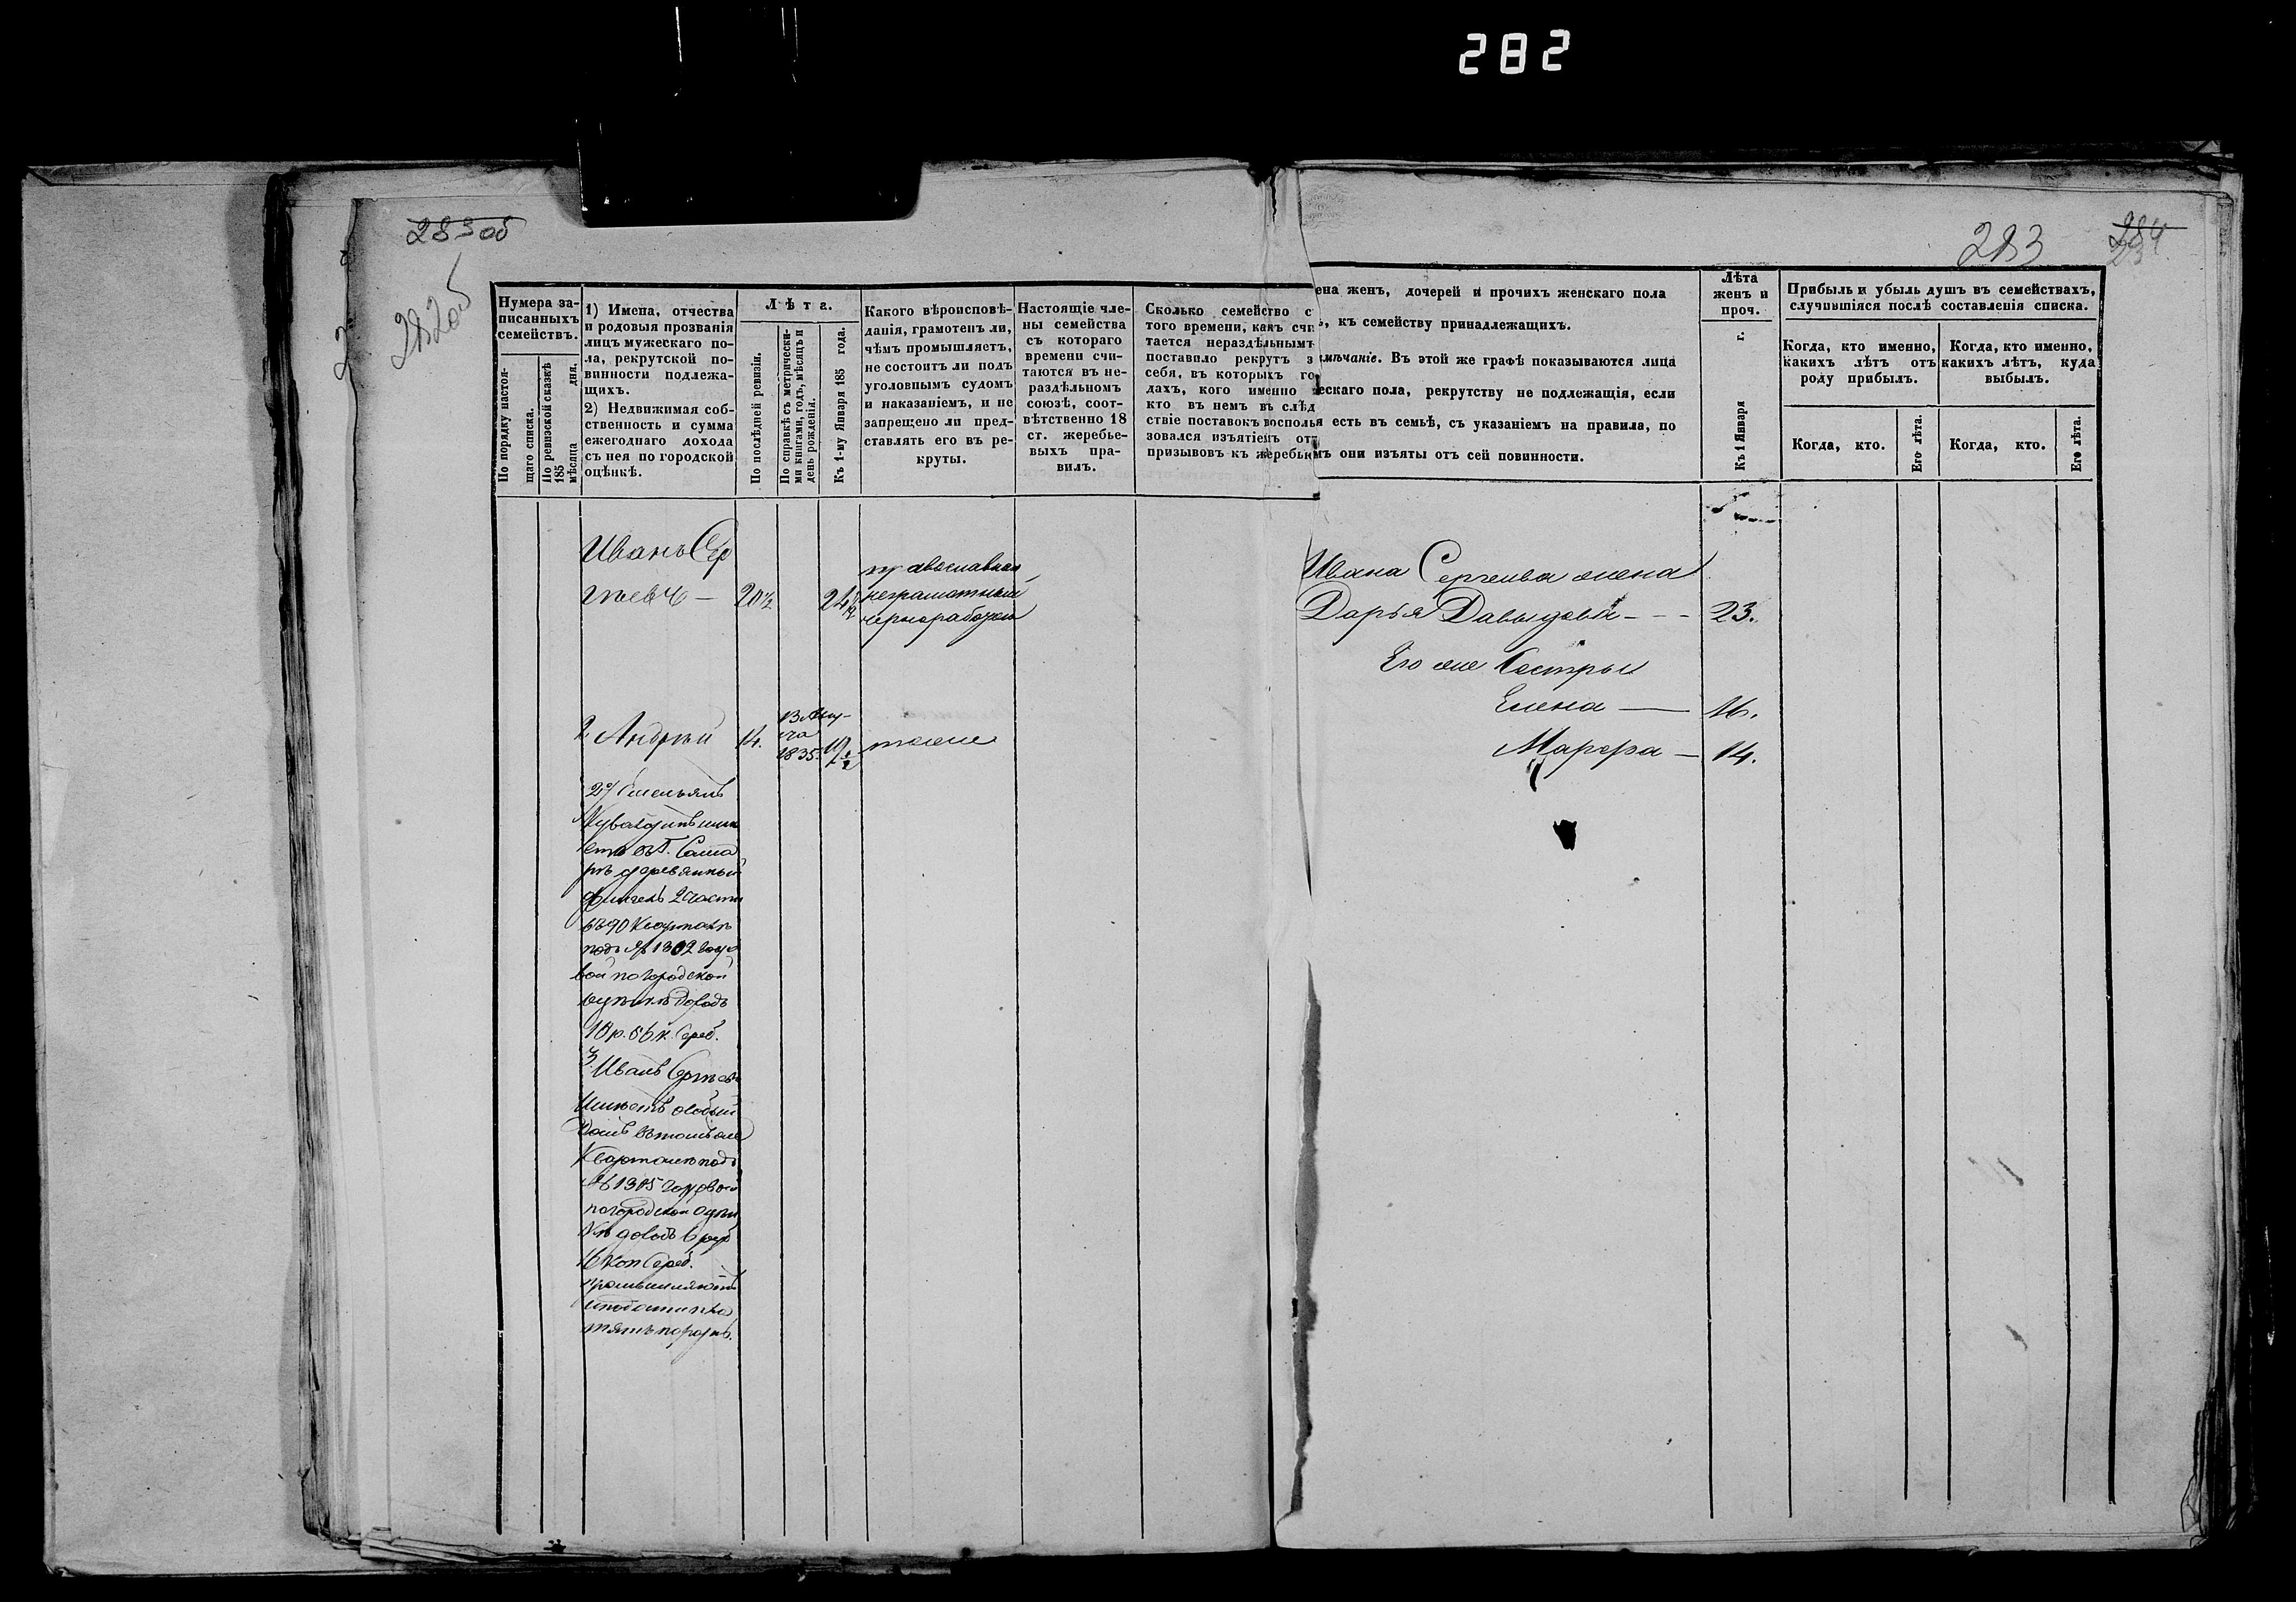 282
283 об
282 об
283
284
Нумера за-
писанныхъ
семействъ.
По порядку настоя-
щаго списка.
По ревизской сказкѣ
185
мѣсяца дня.
1) Имена, отчества
и родовыя прозванія
лицъ мужескаго по-
ла, рекрутской по-
винности подлежа-
щихъ.
2) Недвижимая соб-
ственность и сумма
ежегоднаго дохода
съ нея по городской
оцѣнкѣ.
Лѣта.
По послѣдней ревизіи.
По справкѣ съ метрически-
ми книгами, годъ, мѣсяцъ и
день рожденія.
Къ 1-му Января 185 года.
Какого вѣроисповѣ-
данія, грамотенъ ли,
чѣмъ промышляетъ,
не состоитъ ли подъ
уголовнымъ судомъ
и наказаніемъ, и не
запрещено ли пред-
ставлять его въ ре-
круты.
Настоящіе чле-
ны семейства
съ котораго
времени счи-
таются въ не-
раздѣльномъ
союзѣ, соот-
вѣтственно 18
ст. жеребье-
выхъ пра-
вилъ.
Сколько семейство с
того времени, какъ счи
тается нераздѣльнымъ
поставило рекрутъ з
себя, въ которыхъ го
дахъ, кого именно
кто въ немъ въ слѣд
ствіе поставокъ восполь
зовался изъятіемъ от
призывовъ къ жеребью
Иванъ Сер
гѣевъ — 20½ 24½
православный
неграматный
чернорабочей
2 Андрѣй 14. 13 Авгу-
ста
1835. 19½ тоже
2) Емельянъ
Кувайдинъ имѣ
етъ въ Г. Сама
рѣ деревянный
флигель 2 части
въ 90 Кварталѣ
подъ № 1302 годо
вой по городской
оцѣнкѣ доходъ
18 р. 56 к. Сереб.
3. Иванъ Сергѣевъ
Имѣетъ особый
домъ въ томъ же
Кварталѣ подъ
№ 1305 годовой
по городской оцѣн
кѣ доходъ 6 руб
16 коп Сереб.
промышляютъ
и подати пла
тятъ порознь.
ена женъ, дочерей и прочихъ женскаго пола
ъ, къ семейству принадлежащихъ.
имѣчаніе. Въ этой же графѣ показываются лица
ескаго пола, рекрутству не подлежащія, если
я есть въ семьѣ, съ указаніемъ на правила, по
мъ они изъяты отъ сей повинности.
Лѣта
женъ и
проч.
Къ 1 Января г.
Прибыль и убыль душъ въ семействахъ,
случившіяся послѣ составленія списка.
Когда, кто именно,
какихъ лѣтъ отъ
роду прибылъ.
Когда, кто именно,
какихъ лѣтъ, куда
выбылъ.
Когда, кто.
Его лѣта.
Когда, кто.
Его лѣта.
Ивана Сергеева жена
Дарья Давыдова - - - 23.
Его же Сестры
Елена — 16.
Марфа — 14.